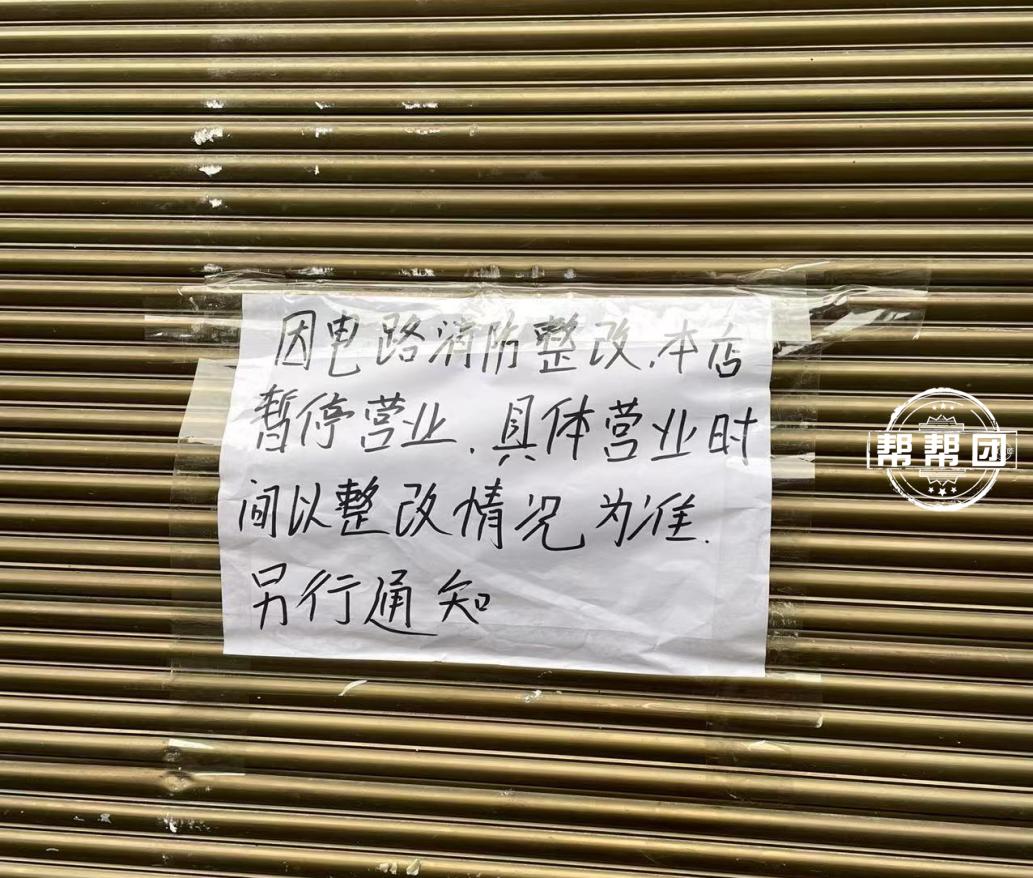 因电路消防整改.本店
暂停营业.具体营业时
间以整改情况为准.
另行通知
帮帮团